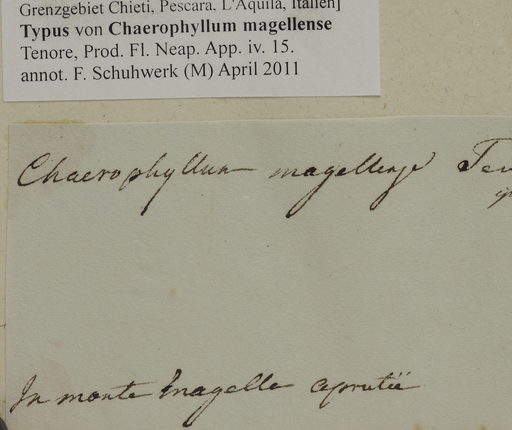 Grenzgebiet Chieti, Pescara. L'Aquila, Italien]
Typus von Chaerophyllum magellense
Tenore, Prod. Fl. Neap. App. iv. 15.
annot. F. Schuhwerk (M) April 2011
Chaerophyllum magellense Ten
In monte Magella aprutii